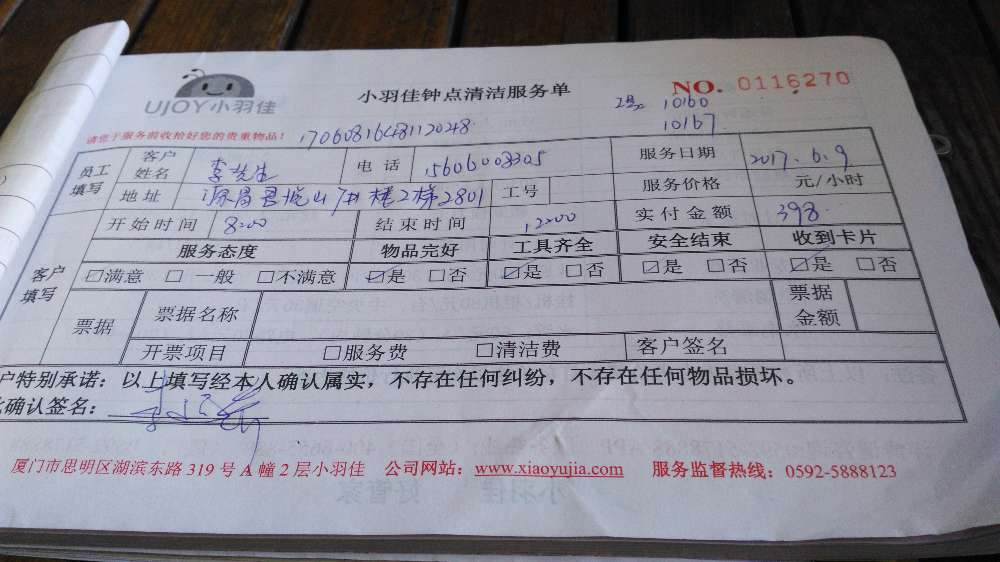 UJOY小羽佳
小羽佳钟点清洁服务单
NO. 0116270
工号: 10160
10167
请您于服务前收拾好您的贵重物品！
1706081648112048
员工填写
客户姓名 李先生 电话 15606008305 服务日期 2017.6.9
地址 源昌君悦山 2梯2801 工号 服务价格 元/小时
开始时间 8:00 结束时间 12:00 实付金额 398
客户填写
服务态度 物品完好 工具齐全 安全结束 收到卡片
☑满意 □一般 □不满意 ☑是 □否 ☑是 □否 ☑是 □否 ☑是 □否
票据 票据名称 票据金额
开票项目 □服务费 □清洁费 客户签名
户特别承诺：以上填写经本人确认属实，不存在任何纠纷，不存在任何物品损坏。
此确认签名：
厦门市思明区湖滨东路 319 号 A 幢 2 层小羽佳 公司网站：www.xiaoyujia.com 服务监督热线：0592-5888123